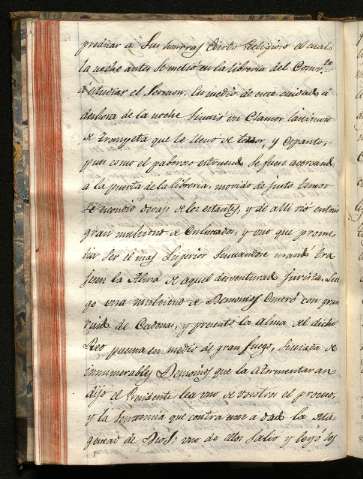 predicar a sus honras cierto Religioso el cual
la noche antes se metio en la libreria del Conv.to
a estudiar el sermon. En medio de este cuidado, a
deshora de la noche un Clamor lastimero
de trompeta que le lleno de terror, y espanto,
y en como el pavoroso estruendo se fuese acercando
a la puerta de la libreria, movido de justo temor
se escondio devajo de los estantes, y de alli vio entrar
gran multitud de Enlutados, y uno que
ser el mas Superior sentandose mandó tra
jesen la Alma de aquel desventurado Jurista. Lue
go una multitud de Demonios entró con gran
ruido de Cadenas, y presentó la alma del dicho
Reo puesta en medio de gran fuego, cercada de
innumerables Demonios que la atormentaban
dijo el Presidente lea uno de vosotros el proceso,
y la sentencia que contra ese a dado la Ma
gestad de Dios: uno de ellos salio y leyo los